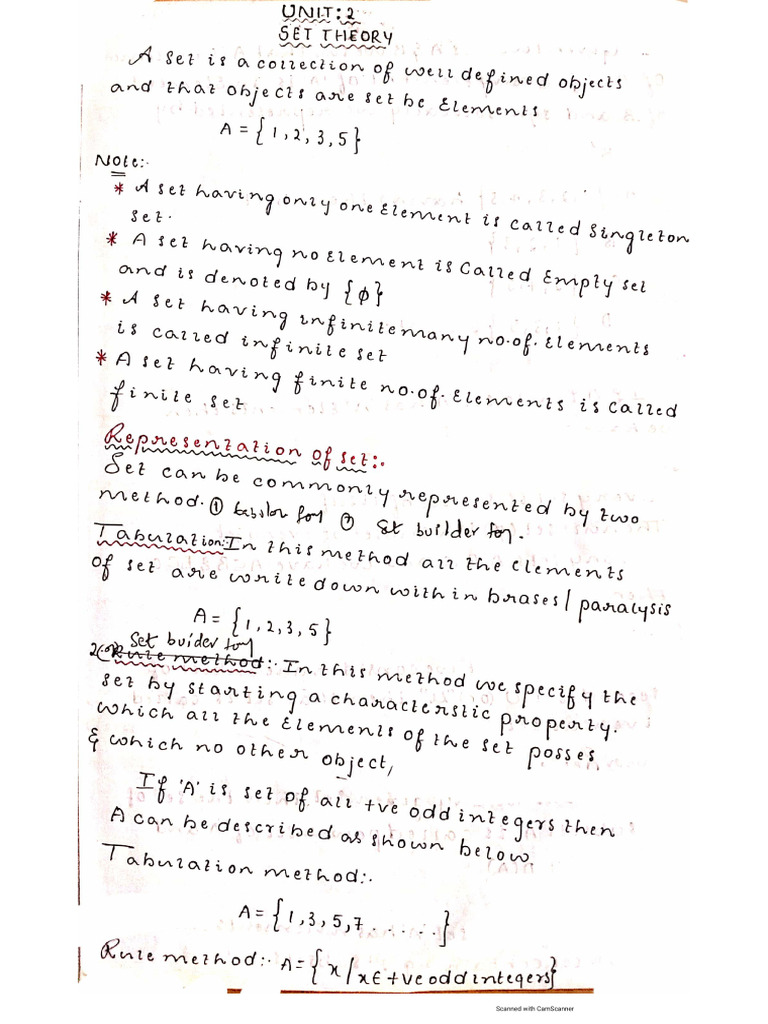 UNIT:2
SET THEORY
A set is a collection of well defined objects
and that objects are set be Elements
A = {1,2,3,5}
Note:-
* A set having only one Element is called Singleton
set.
* A set having no Element is Called Empty set
and is denoted by {ϕ}
* A set having infinitemany no.of. Elements
is called infinite set
* A set having finite no.of. Elements is Called
finite set
Representation of set:-
Set can be commonly represented by two
method. ① ② Set builder
Tabulation:- In this method all the Elements
of set are write down with in brases/paralysis
A = {1,2,3,5}
Set buider
2 (or) Rule method:- In this method we specify the
set by starting a characterstic property.
which all the Elements of the set posses,
& which no other object,
If 'A' is set of all +ve odd integers then
A can be described as shown below.
Tabulation method:-
A = {1,3,5,7.....}
Rule method:- A = {x/x∈ +ve odd integers}
Scanned with CamScanner